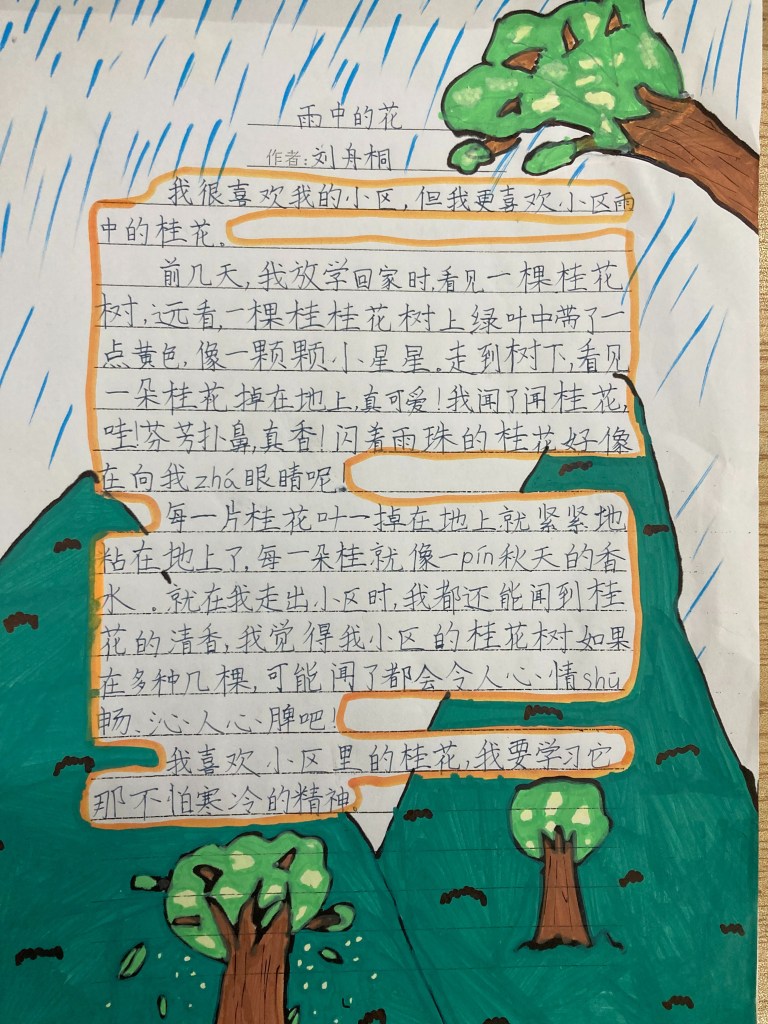 雨中的花
作者:刘舟桐
我很喜欢我的小区,但我更喜欢小区雨
中的桂花。
前几天,我放学回家时,看见一棵桂花
树,远看,一棵桂桂花树上绿叶中带了一
点黄色,像一颗颗小星星。走到树下,看见
一朵桂花掉在地上,真可爱!我闻了闻桂花,
哇!芬芳扑鼻,真香!闪着雨珠的桂花好像
在向我zhá眼睛呢。
每一片桂花叶一掉在地上就紧紧地
粘在地上了,每一朵桂就像一pín秋天的香
水。就在我走出小区时,我都还能闻到桂
花的清香,我觉得我小区的桂花树如果
在多种几棵,可能闻了都会令人心情shū
畅、沁人心脾吧!
我喜欢小区里的桂花,我要学习它
那不怕寒冷的精神。